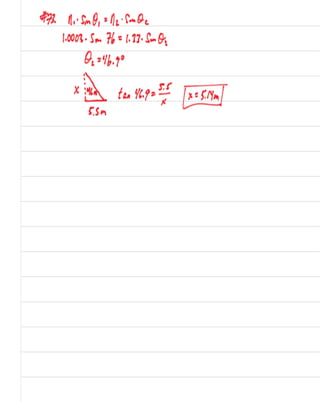 #73. n₁·Sinθ₁ = n₂·Sinθ₂
1.0003·Sin 76 = 1.33·Sinθ₂
θ₂ = 46.9°
x 46.9 tan 46.9 = 5.5/x x = 5.14m
5.5m